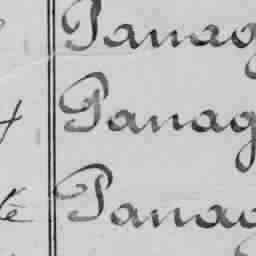 Panag
Panag
té Panag